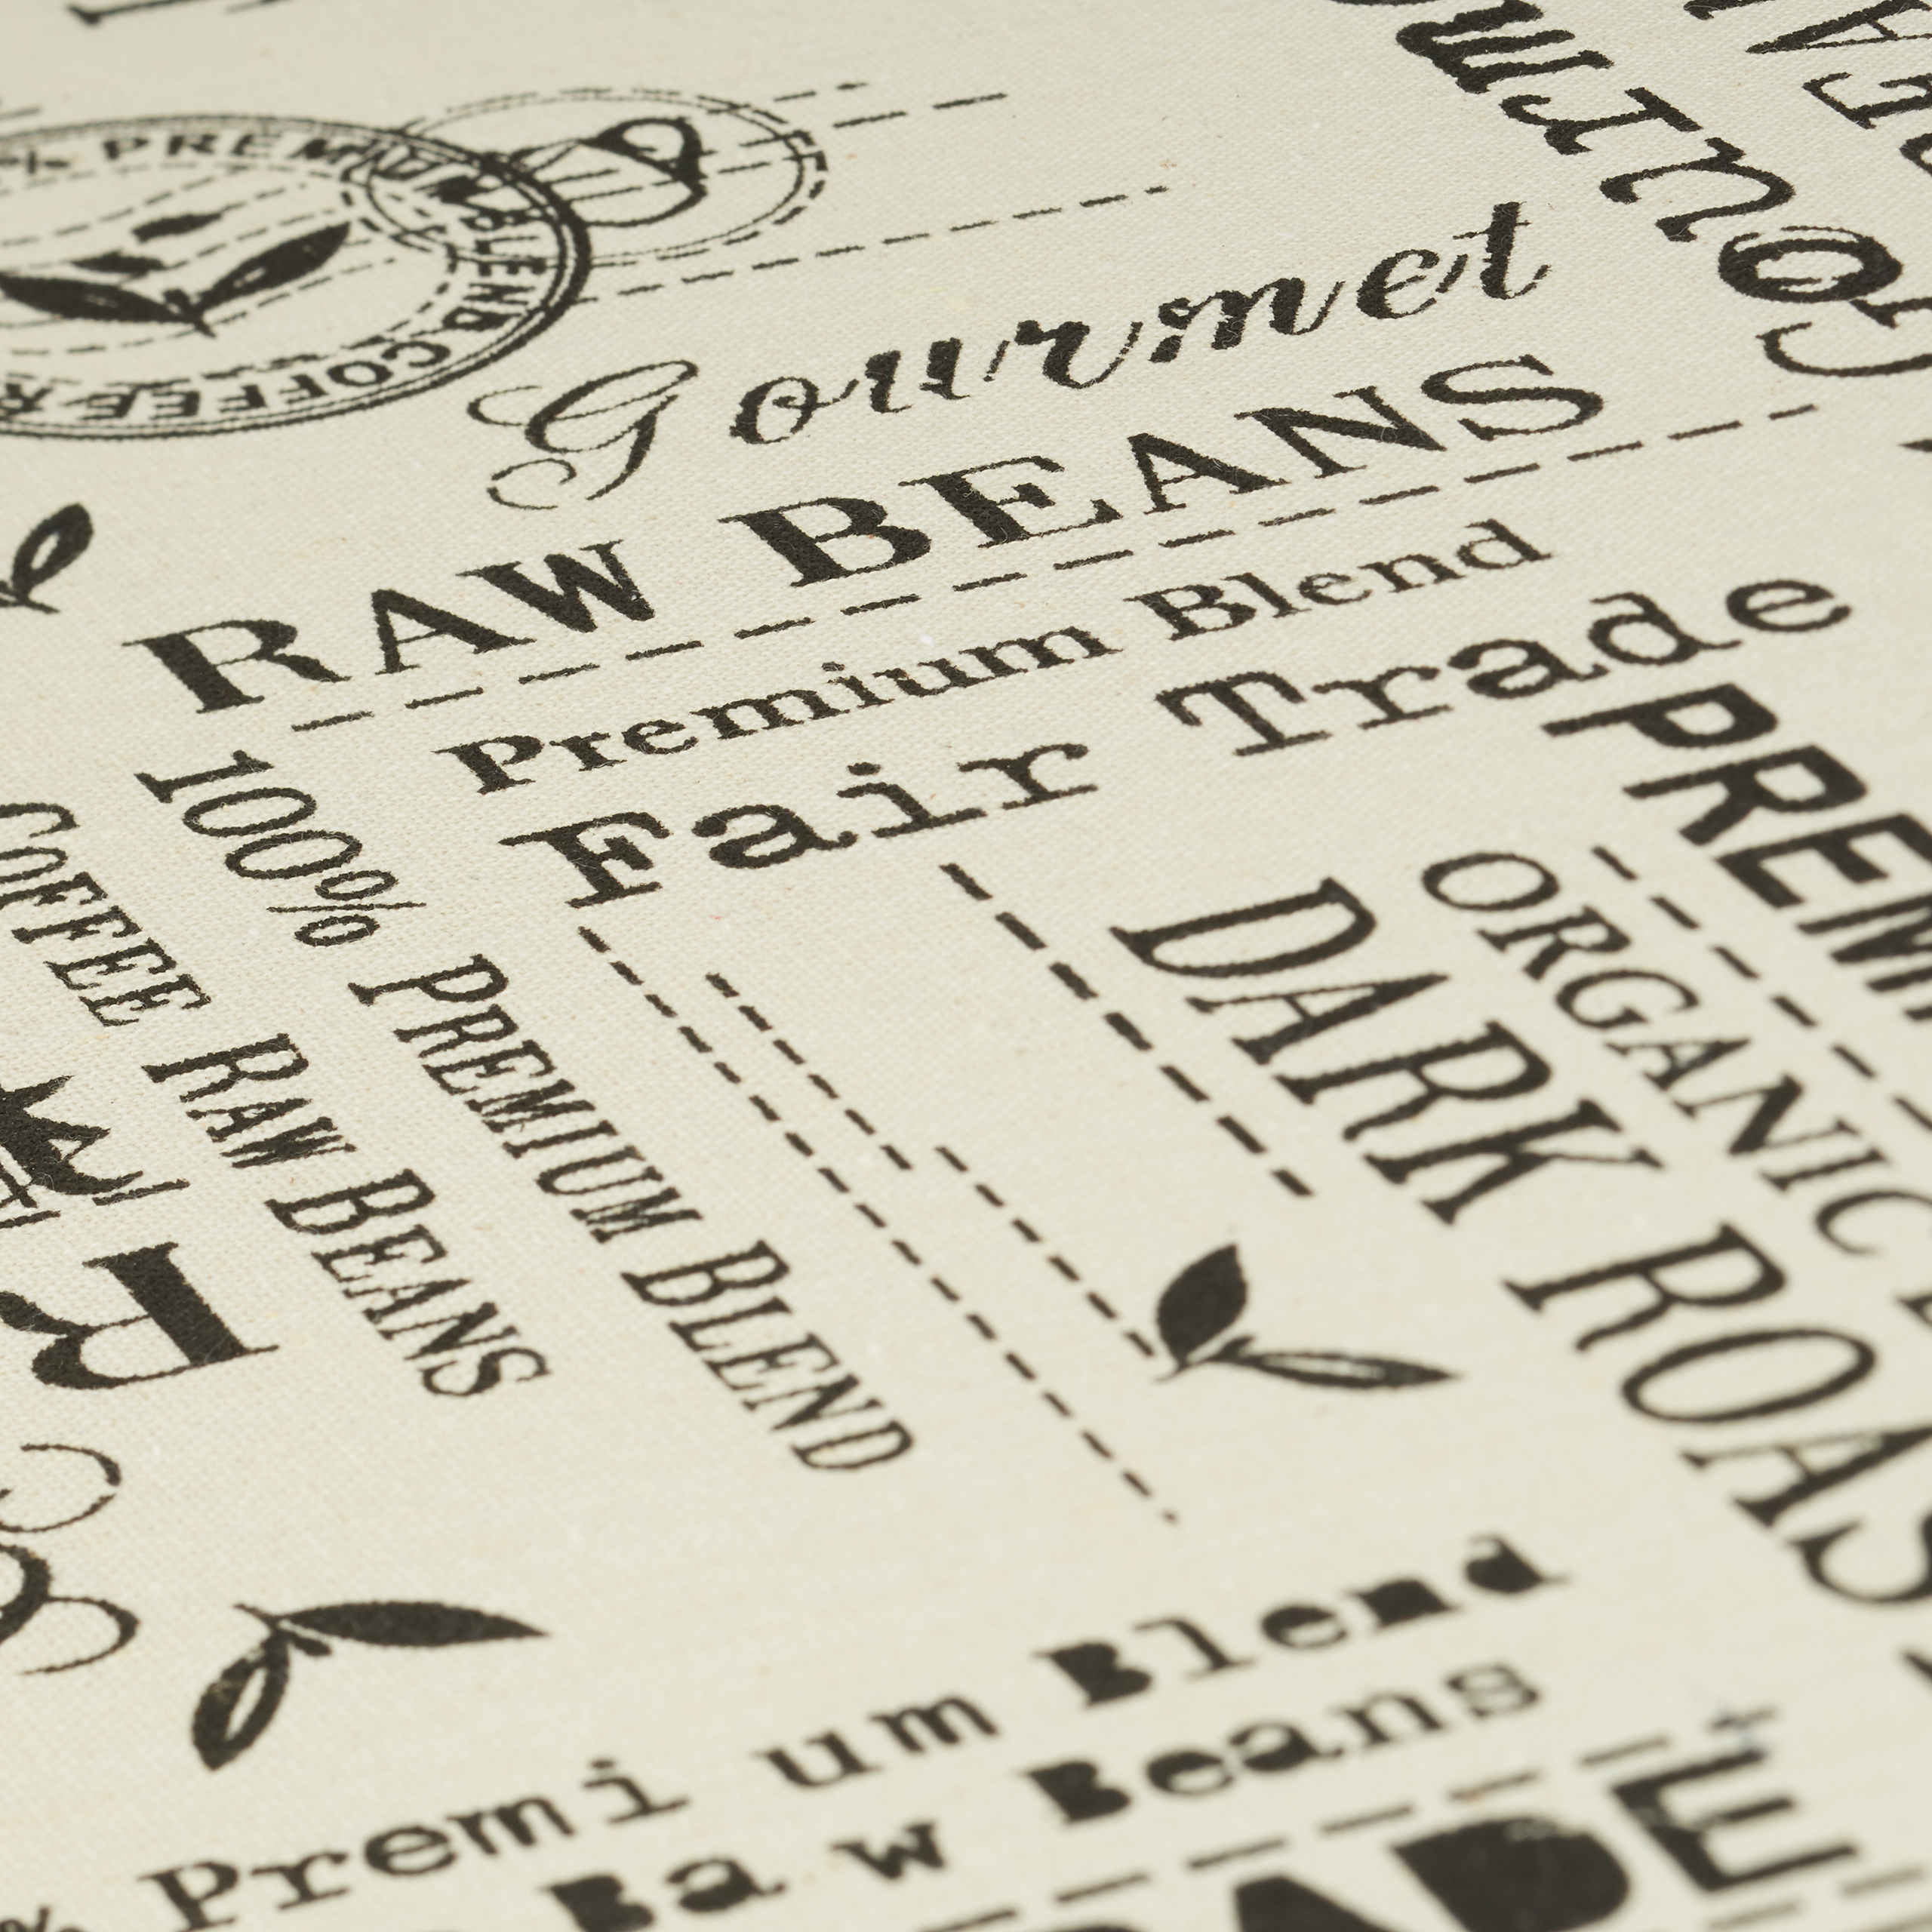 % PREMIUM BLEND COFFEE R
Gourmet
RAW BEANS
Premium Blend
Fair Trade
100% PREMIUM BLEND
COFFEE RAW BEANS
DARK ROAS
ORGANIC
PREM
GOURM
R
% Premi um Blend
Raw Beans
ADE